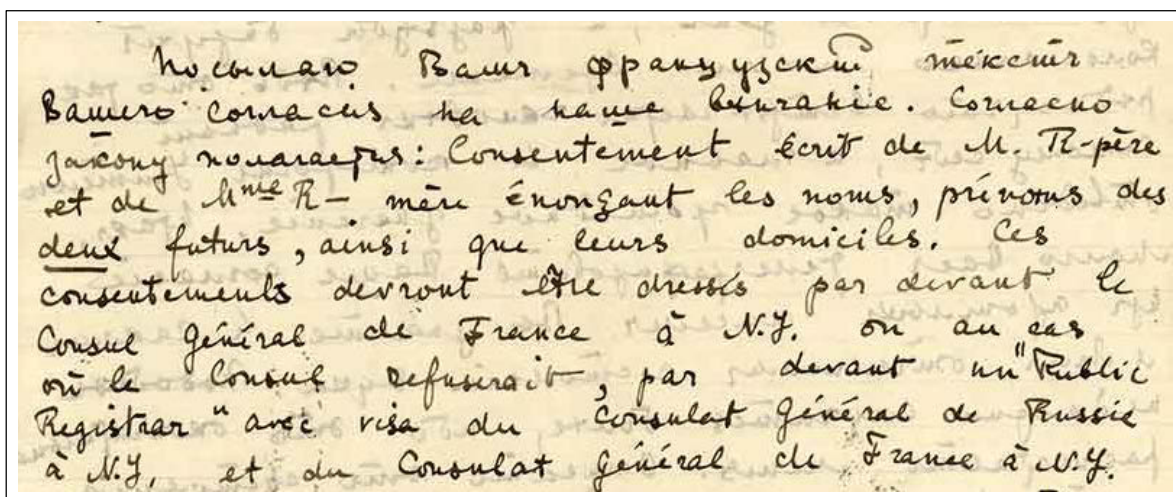 Посылаю Вамъ французскій текстъ
Вашего согласія на наше вѣнчаніе. Согласно
закону полагается: Consentement écrit de M. R-père
et de Mme R- mère énonçant les noms, prénoms des
deux futurs, ainsi que leurs domiciles. Ces
consentements devront être dressés par devant le
Consul Général de France à N.Y. ou au cas
où le Consul refuserait, par devant un "Public
Registrar" avec visa du Consulat Général de Russie
à N.Y. et du Consulat Général de France à N.Y.